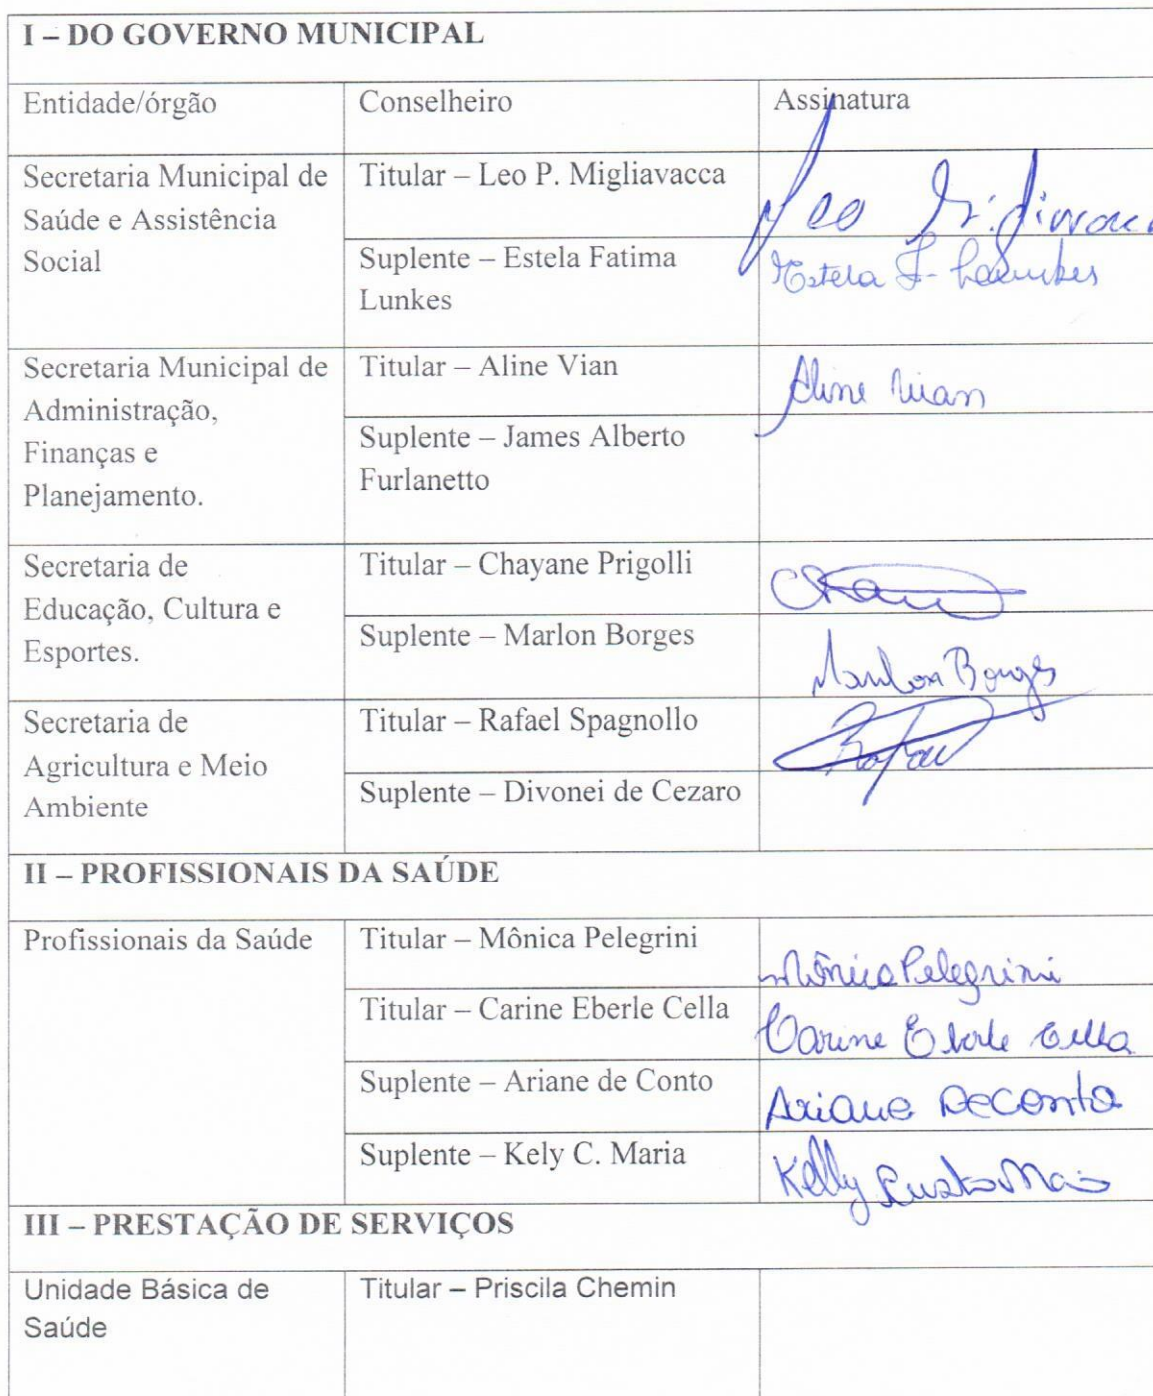 I – DO GOVERNO MUNICIPAL
Entidade/órgão
Conselheiro
Assinatura
Secretaria Municipal de
Saúde e Assistência
Social
Titular – Leo P. Migliavacca
Leo
Suplente – Estela Fatima
Lunkes
Estela F. Lunkes
Secretaria Municipal de
Administração,
Finanças e
Planejamento.
Titular – Aline Vian
Aline Vian
Suplente – James Alberto
Furlanetto
Secretaria de
Educação, Cultura e
Esportes.
Titular – Chayane Prigolli
Suplente – Marlon Borges
Marlon Borges
Secretaria de
Agricultura e Meio
Ambiente
Titular – Rafael Spagnollo
Rafael
Suplente – Divonei de Cezaro
II – PROFISSIONAIS DA SAÚDE
Profissionais da Saúde
Titular – Mônica Pelegrini
Mônica Pelegrini
Titular – Carine Eberle Cella
Carine Eberle Cella
Suplente – Ariane de Conto
Ariane DeConto
Suplente – Kely C. Maria
Kelly
III – PRESTAÇÃO DE SERVIÇOS
Unidade Básica de
Saúde
Titular – Priscila Chemin